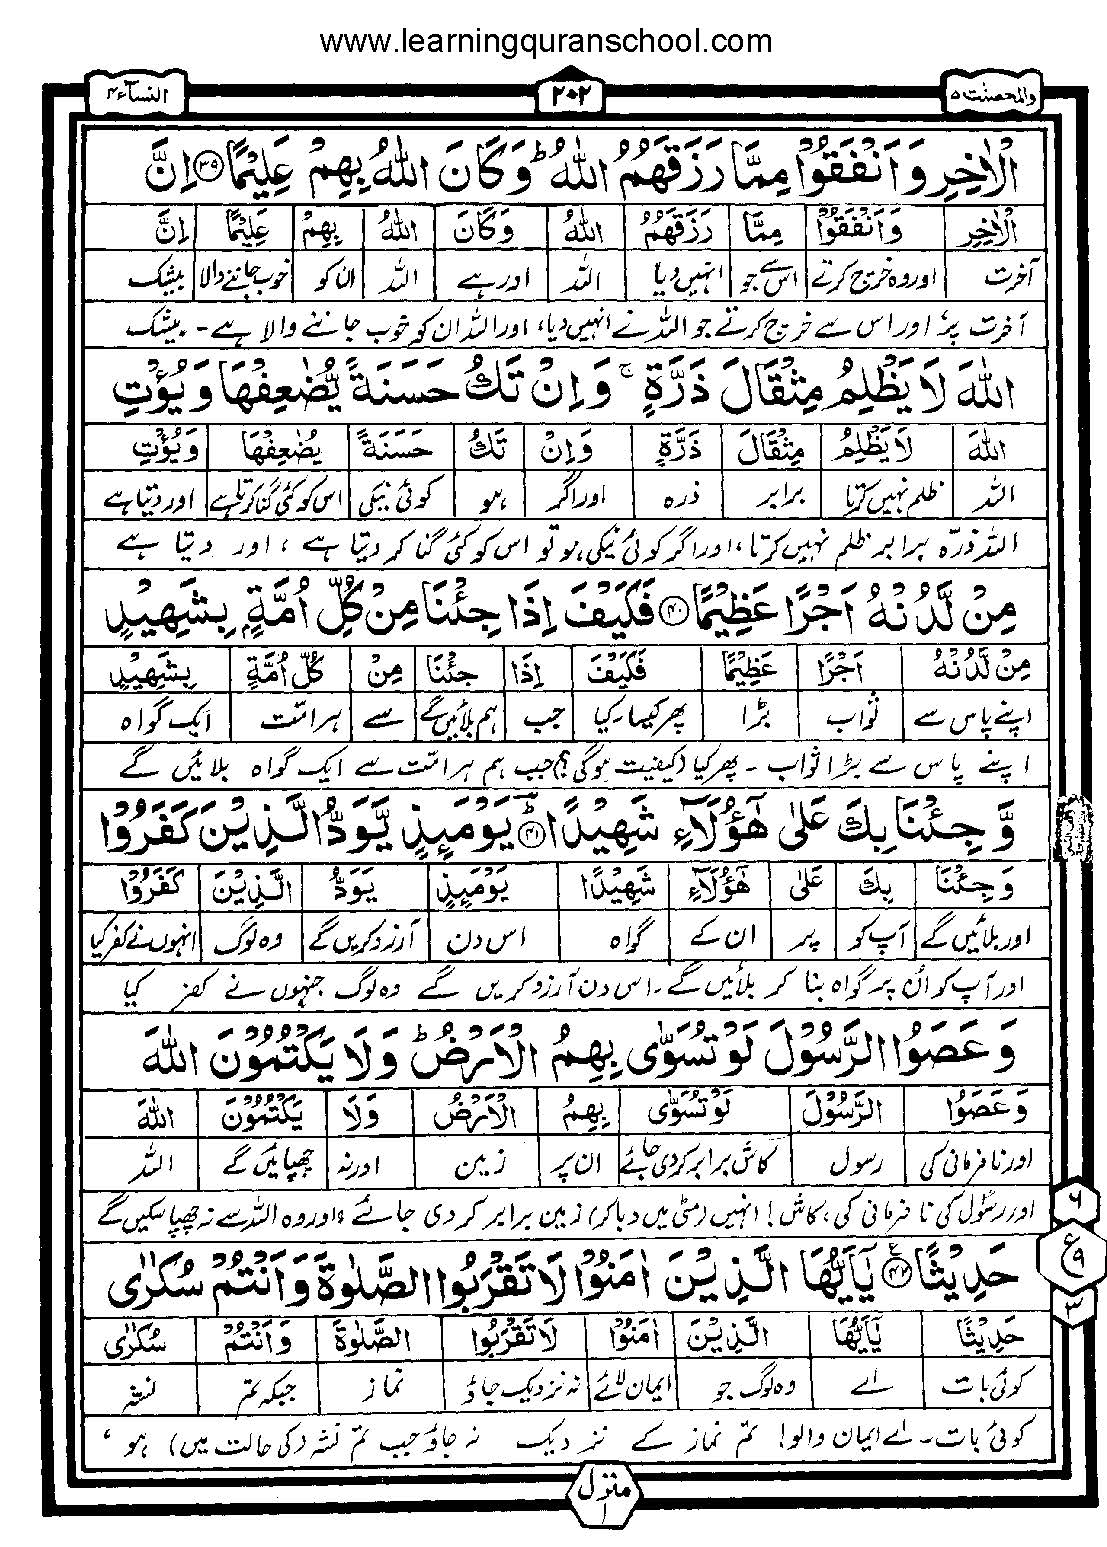 www.learningquranschool.com
النسآء ۴
۲۰۲
والمحصنت ۵
الْاٰخِرِ وَاَنْفَقُوْا مِمَّا رَزَقَهُمُ اللّٰهُ ؕ وَكَانَ اللّٰهُ بِهِمْ عَلِيْمًا ﴿۳۹﴾ اِنَّ
الْاٰخِرِ وَاَنْفَقُوْا مِمَّا رَزَقَهُمُ اللّٰهُ وَكَانَ اللّٰهُ بِهِمْ عَلِيْمًا اِنَّ
آخرت اور وہ خرچ کرتے اس سے جو انہیں دیا اللہ اور ہے اللہ ان کو خوب جاننے والا بیشک
آخرت پر، اور اس سے خرچ کرتے جو اللہ نے انہیں دیا، اور اللہ ان کو خوب جاننے والا ہے۔ بیشک
اللّٰهَ لَا يَظْلِمُ مِثْقَالَ ذَرَّةٍ ۚ وَاِنْ تَكُ حَسَنَةً يُّضٰعِفْهَا وَيُؤْتِ
اللّٰهَ لَا يَظْلِمُ مِثْقَالَ ذَرَّةٍ وَاِنْ تَكُ حَسَنَةً يُضٰعِفْهَا وَيُؤْتِ
اللہ ظلم نہیں کرتا برابر ذرہ اور اگر ہو کوئی نیکی اس کو کئی گنا کرتا ہے اور دیتا ہے
اللہ ذرّہ برابر ظلم نہیں کرتا، اور اگر کوئی نیکی ہو تو اس کو کئی گنا کر دیتا ہے، اور دیتا ہے
مِنْ لَّدُنْهُ اَجْرًا عَظِيْمًا ﴿۴۰﴾ فَكَيْفَ اِذَا جِئْنَا مِنْ كُلِّ اُمَّةٍۭ بِشَهِيْدٍ
مِنْ لَّدُنْهُ اَجْرًا عَظِيْمًا فَكَيْفَ اِذَا جِئْنَا مِنْ كُلِّ اُمَّةٍ بِشَهِيْدٍ
اپنے پاس سے ثواب بڑا پھر کیسا۔کیا جب ہم بلائیں گے سے ہر امت ایک گواہ
اپنے پاس سے بڑا ثواب۔ پھر کیا (کیفیت ہوگی؟) جب ہم ہر امت سے ایک گواہ بلائیں گے
وَّجِئْنَا بِكَ عَلٰى هٰٓؤُلَآءِ شَهِيْدًا ﴿۴۱﴾ؕ يَوْمَئِذٍ يَّوَدُّ الَّذِيْنَ كَفَرُوْا
وَجِئْنَا بِكَ عَلٰى هٰٓؤُلَآءِ شَهِيْدًا يَوْمَئِذٍ يَوَدُّ الَّذِيْنَ كَفَرُوْا
اور بلائیں گے آپ کو پر ان کے گواہ اس دن آرزو کریں گے وہ لوگ انہوں نے کفر کیا
اور آپ کو ان پر گواہ بنا کر بلائیں گے۔ اس دن آرزو کریں گے وہ لوگ جنہوں نے کفر کیا
وَعَصَوُا الرَّسُوْلَ لَوْ تُسَوّٰى بِهِمُ الْاَرْضُ ؕ وَلَا يَكْتُمُوْنَ اللّٰهَ
وَعَصَوُا الرَّسُوْلَ لَوْ تُسَوّٰى بِهِمُ الْاَرْضُ وَلَا يَكْتُمُوْنَ اللّٰهَ
اور نافرمانی کی رسول کاش برابر کردی جائے ان پر زمین اور نہ چھپائیں گے اللہ
اور رسول کی نافرمانی کی، کاش! انہیں (مٹی میں دبا کر) زمین برابر کر دی جائے، اور وہ اللہ سے نہ چھپا سکیں گے
۶
ع
۹
۳
حَدِيْثًا ﴿۴۲﴾ يٰٓاَيُّهَا الَّذِيْنَ اٰمَنُوْا لَا تَقْرَبُوا الصَّلٰوةَ وَاَنْتُمْ سُكَارٰى
حَدِيْثًا يٰٓاَيُّهَا الَّذِيْنَ اٰمَنُوْا لَا تَقْرَبُوا الصَّلٰوةَ وَاَنْتُمْ سُكَارٰى
کوئی بات اے وہ لوگ جو ایمان لائے نہ نزدیک جاؤ نماز جبکہ تم نشہ
کوئی بات۔ اے ایمان والو! تم نماز کے نزدیک نہ جاؤ جب تم نشہ (کی حالت میں) ہو،
منزل ۱